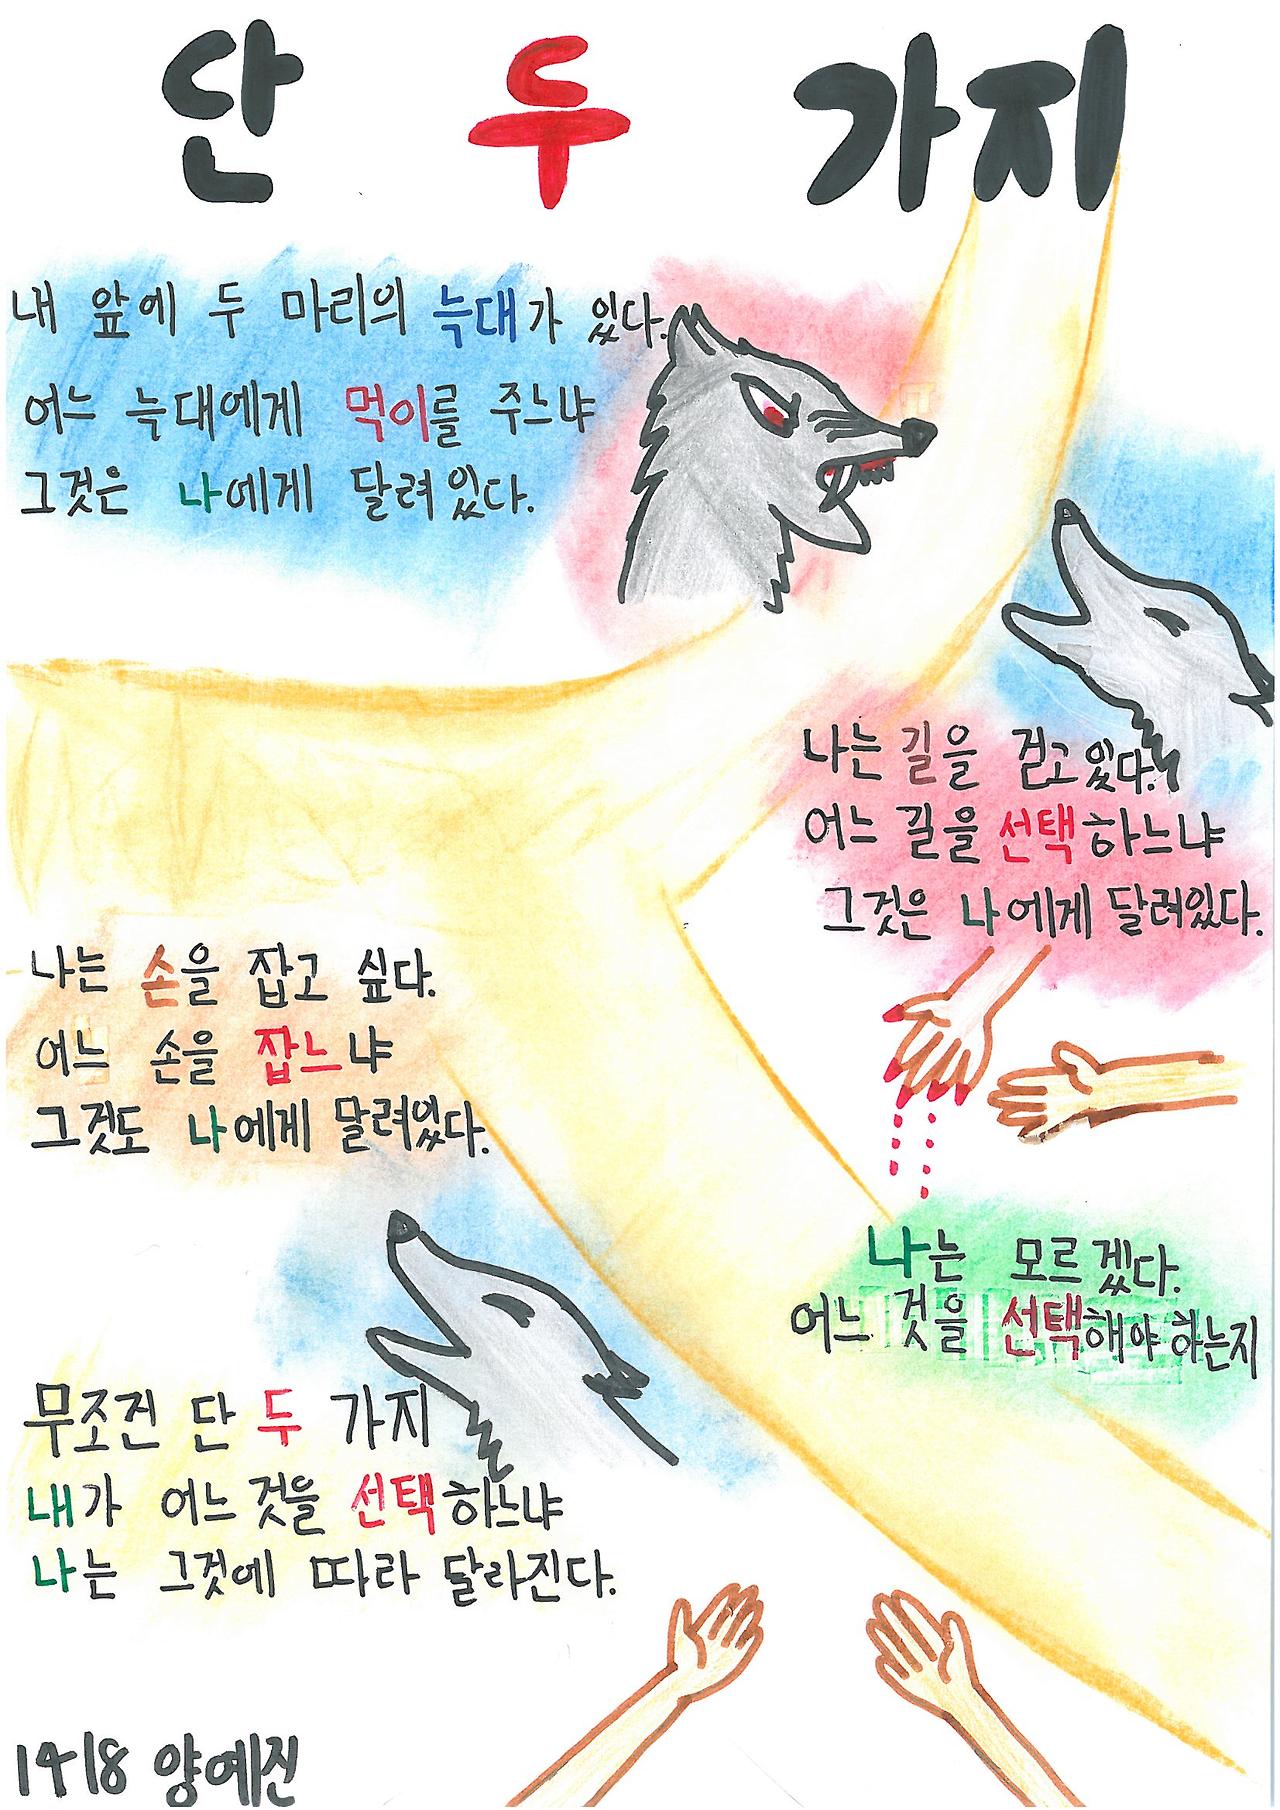 단 두 가지
내 앞에 두 마리의 늑대가 있다.
어느 늑대에게 먹이를 주느냐
그것은 나에게 달려있다.
나는 길을 걷고있다.
어느 길을 선택하느냐
그것은 나에게 달려있다.
나는 손을 잡고 싶다.
어느 손을 잡느냐
그것도 나에게 달려있다.
나는 모르겠다.
어느 것을 선택해야 하는지
무조건 단 두 가지
내가 어느 것을 선택하느냐
나는 그것에 따라 달라진다.
1418 양예진